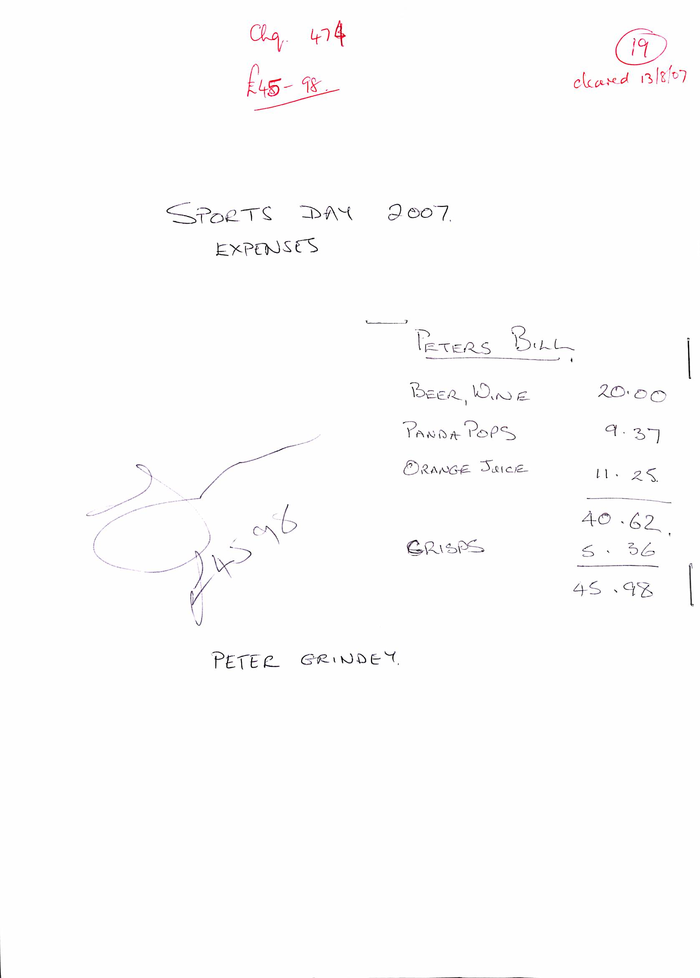 Chq. 474
£45-98.
19
cleared 13/8/07
SPORTS DAY 2007.
EXPENSES
PETERS BILL.
BEER, WINE 20.00
PANDA POPS 9.37
ORANGE JUICE 11.25
40.62.
CRISPS 5.36
45.98
£45 98
PETER GRINDEY.